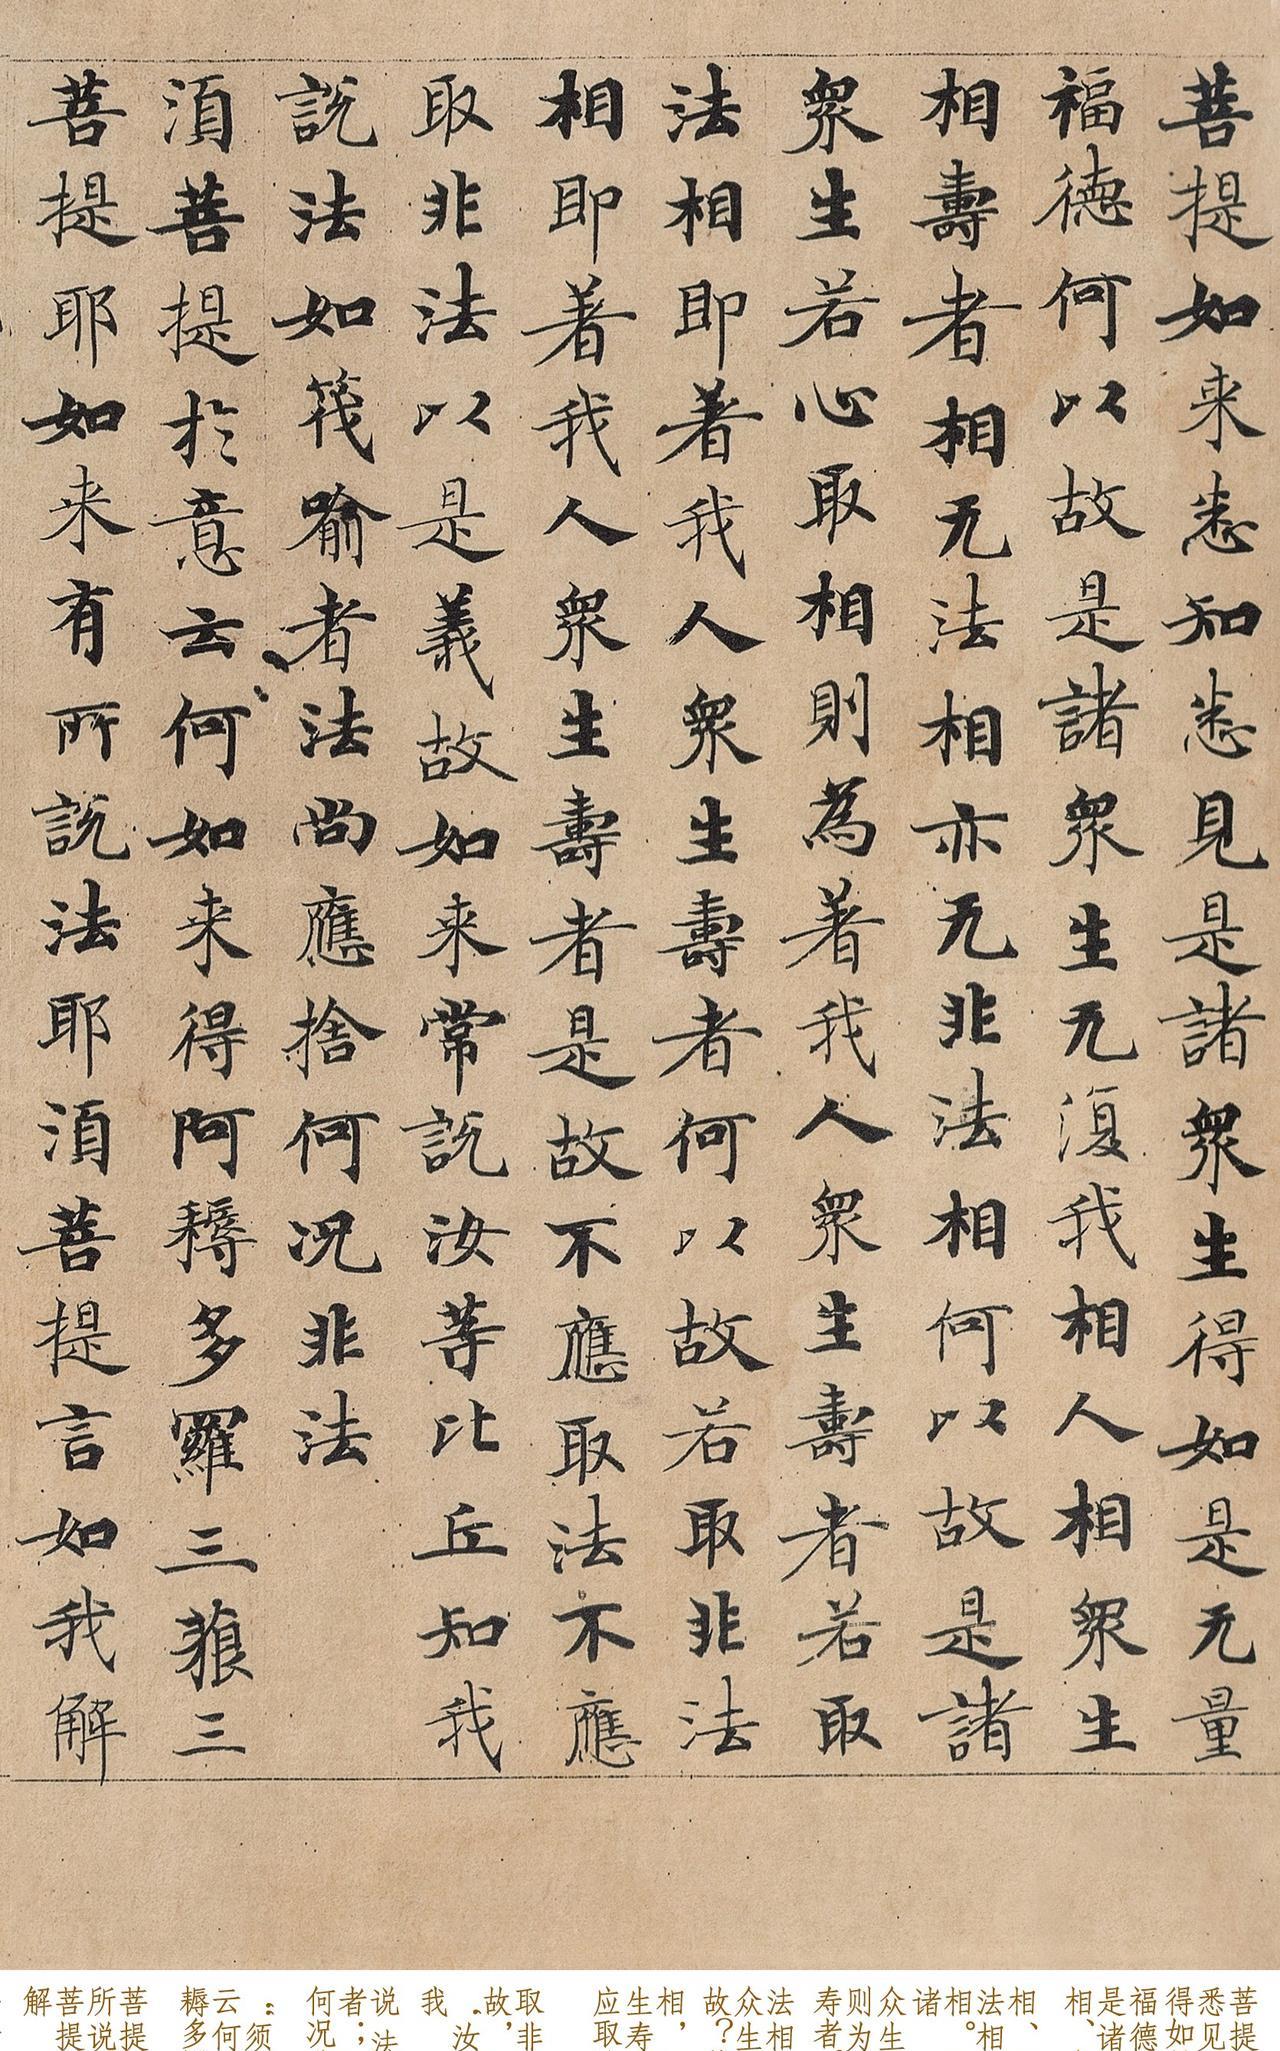 菩提如来悉知悉見是諸衆生得如是无量
福德何以故是諸衆生无復我相人相衆生
相壽者相无法相亦无非法相何以故是諸
衆生若心取相則為著我人衆生壽者若取
法相即著我人衆生壽者何以故若取非法
相即著我人衆生壽者是故不應取法不應
取非法以是義故如来常說汝等比丘知我
說法如筏喻者法尚應捨何况非法
須菩提於意云何如来得阿耨多羅三藐三
菩提耶如来有所說法耶須菩提言如我解
菩提
悉见
得如
福德
是诸
相、
相、
法相
相。
诸
众生
则为
寿者
法相
众生
故？
相，
生寿
应取
取非
故，
汝
我
说法
者；
何况
须
云何
耨多
菩提
所说
菩提
解